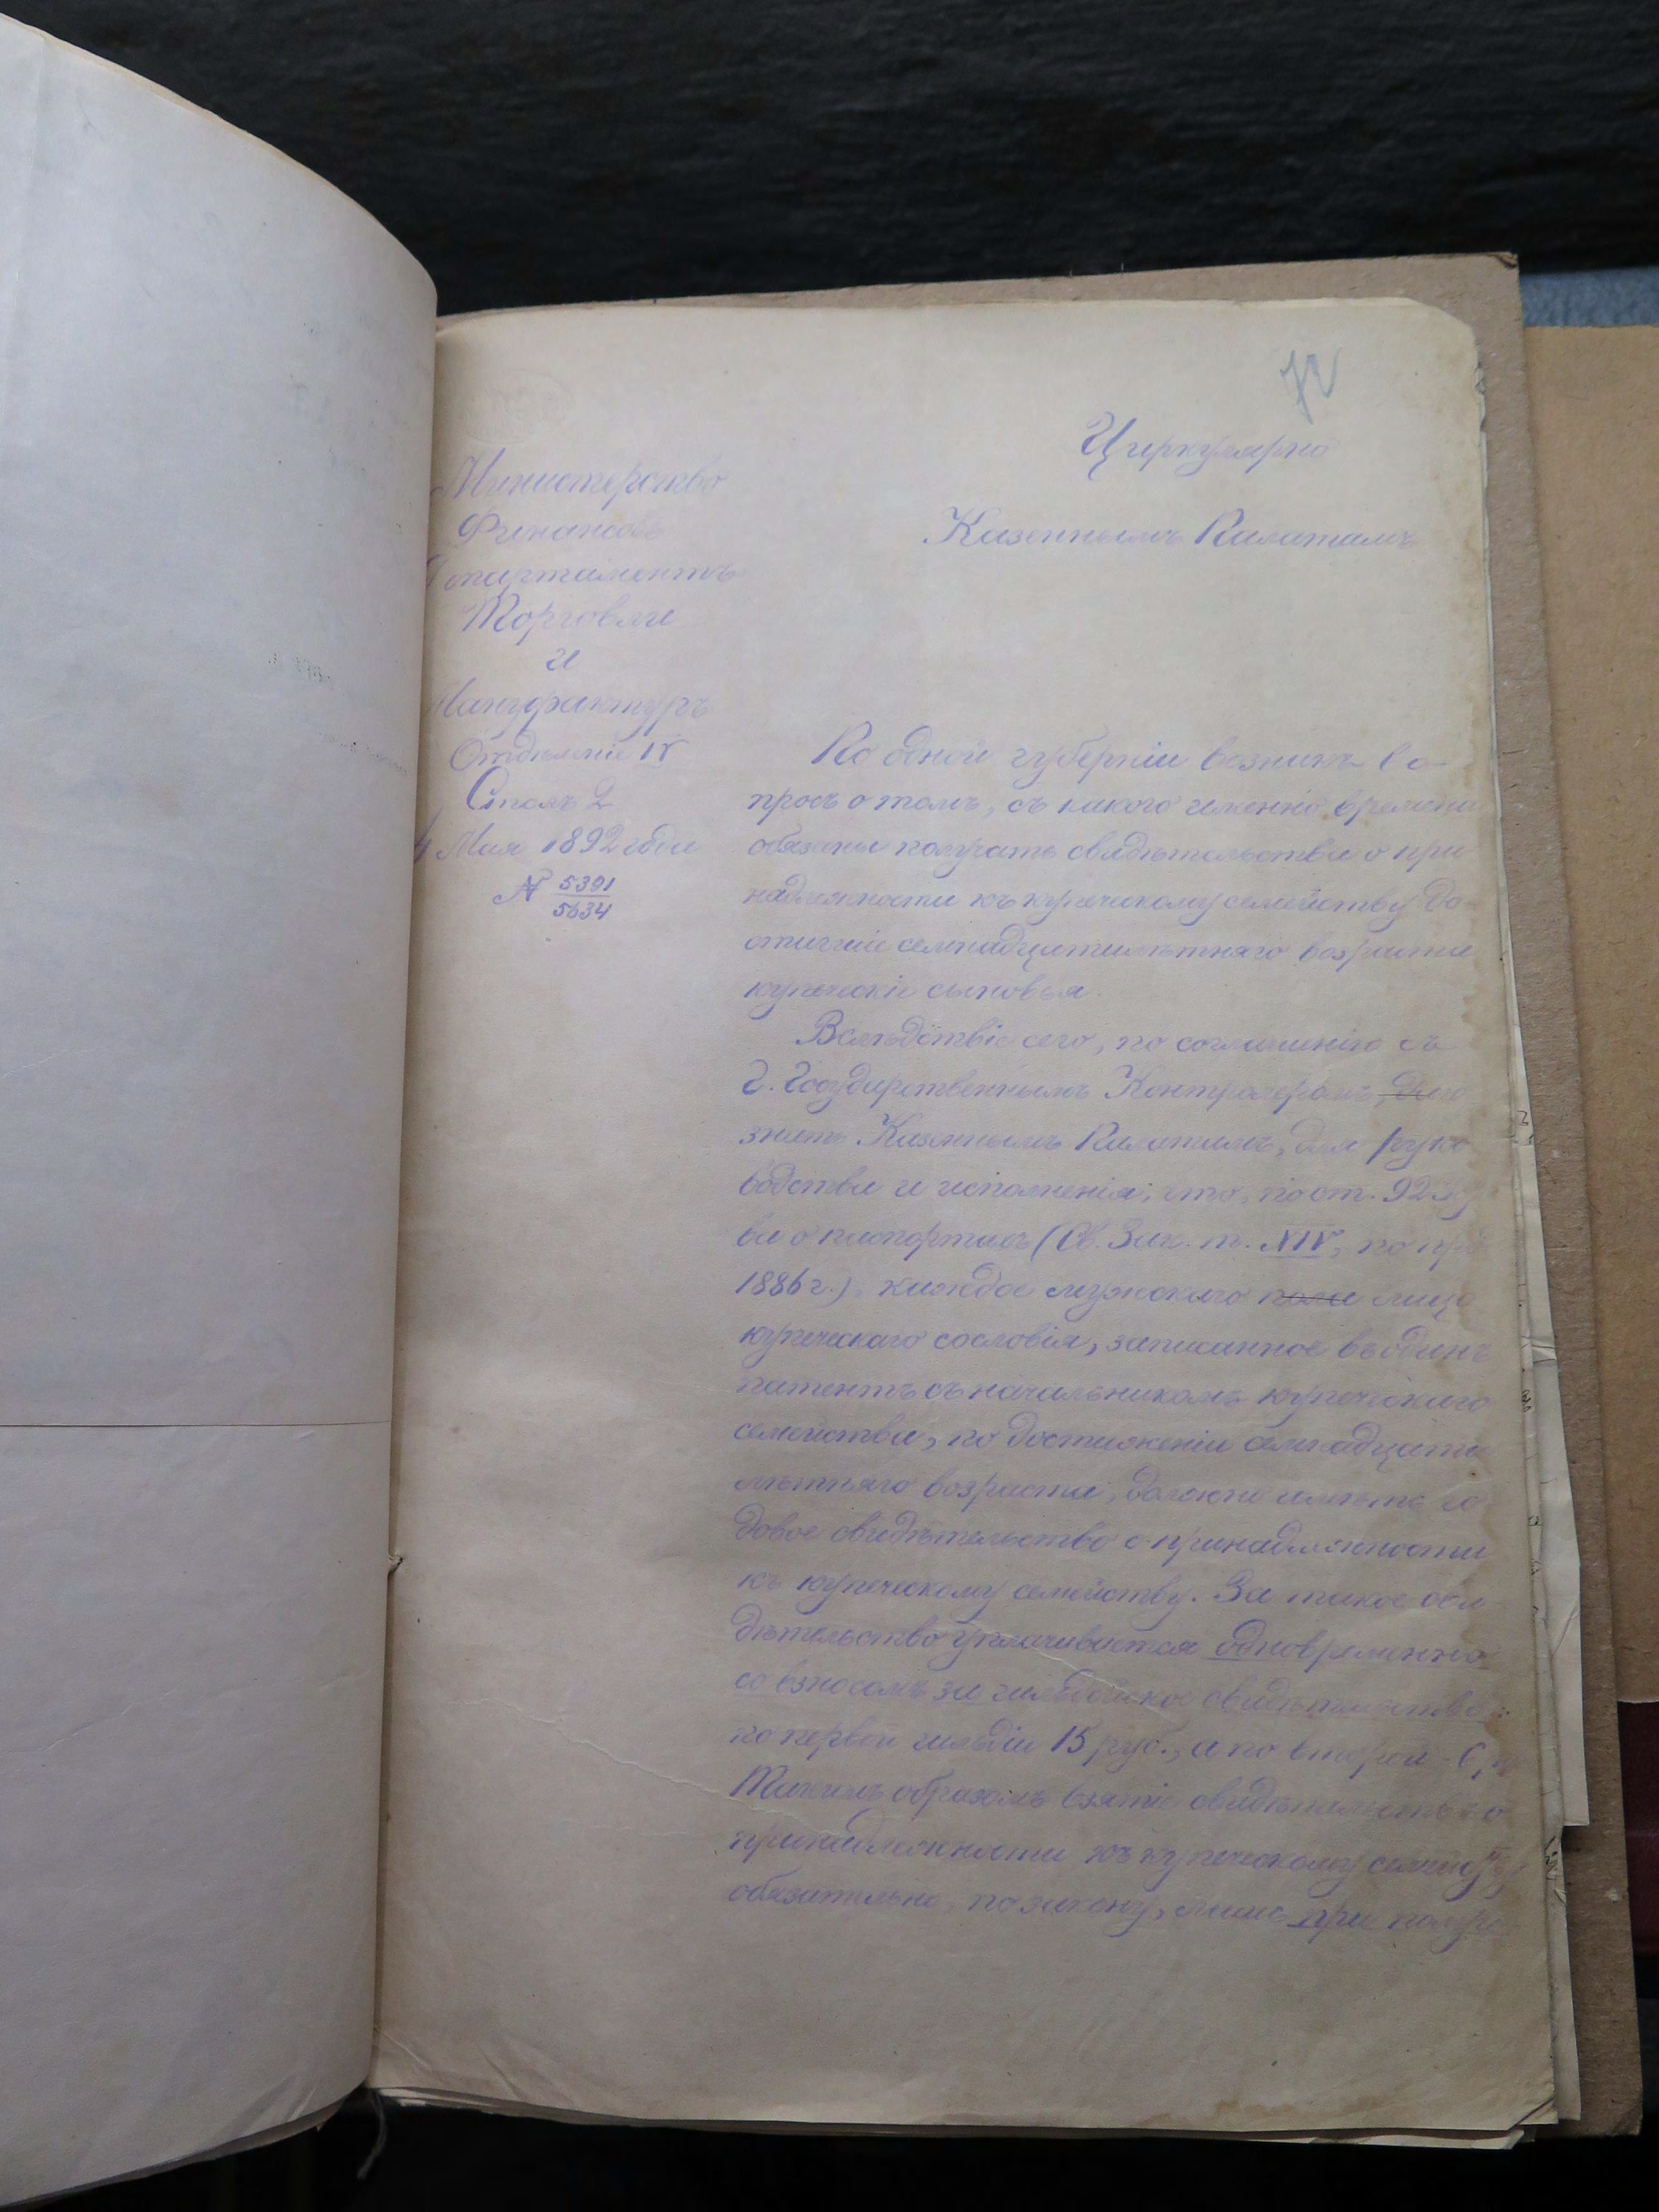 72
Циркулярно
Казеннымъ Палатамъ
Министерство
Финансовъ
Департаментъ
Торговли
и
Мануфактуръ
Отдѣленіе IV
Столъ 2
4 Мая 1892 года
№ 5391/5634
По одной губерніи возникъ во-
просъ о томъ, съ какого именно времени
обязаны получать свидѣтельства о при
надлежности къ купеческому семейству до-
стигшіе семнадцатилѣтняго возраста
купеческіе сыновья.
Вслѣдствіе сего, по соглашенію съ
Г. Государственнымъ Контролеромъ, даю
знать Казеннымъ Палатамъ, для руко
водства и исполненія, что, по ст. 92 Уст
ва о паспортахъ (Св. Зак. т. XIV, по прод.
1886 г.), каждое мужскаго пола лицо
купеческаго сословія, записанное въ одинъ
патентъ съ начальникомъ купеческаго
семейства, по достиженіи семнадцати
лѣтняго возраста, должно имѣть го
довое свидѣтельство о принадлежности
къ купеческому семейству. За такое сви
дѣтельство уплачивается одновременно
со взносомъ за гильдейское свидѣтельство:
по первой гильдіи 15 руб., а по второй - 6 р.
Такимъ образомъ взятіе свидѣтельства о
принадлежности къ купеческому семейству
обязательно, по закону, лишь при получе